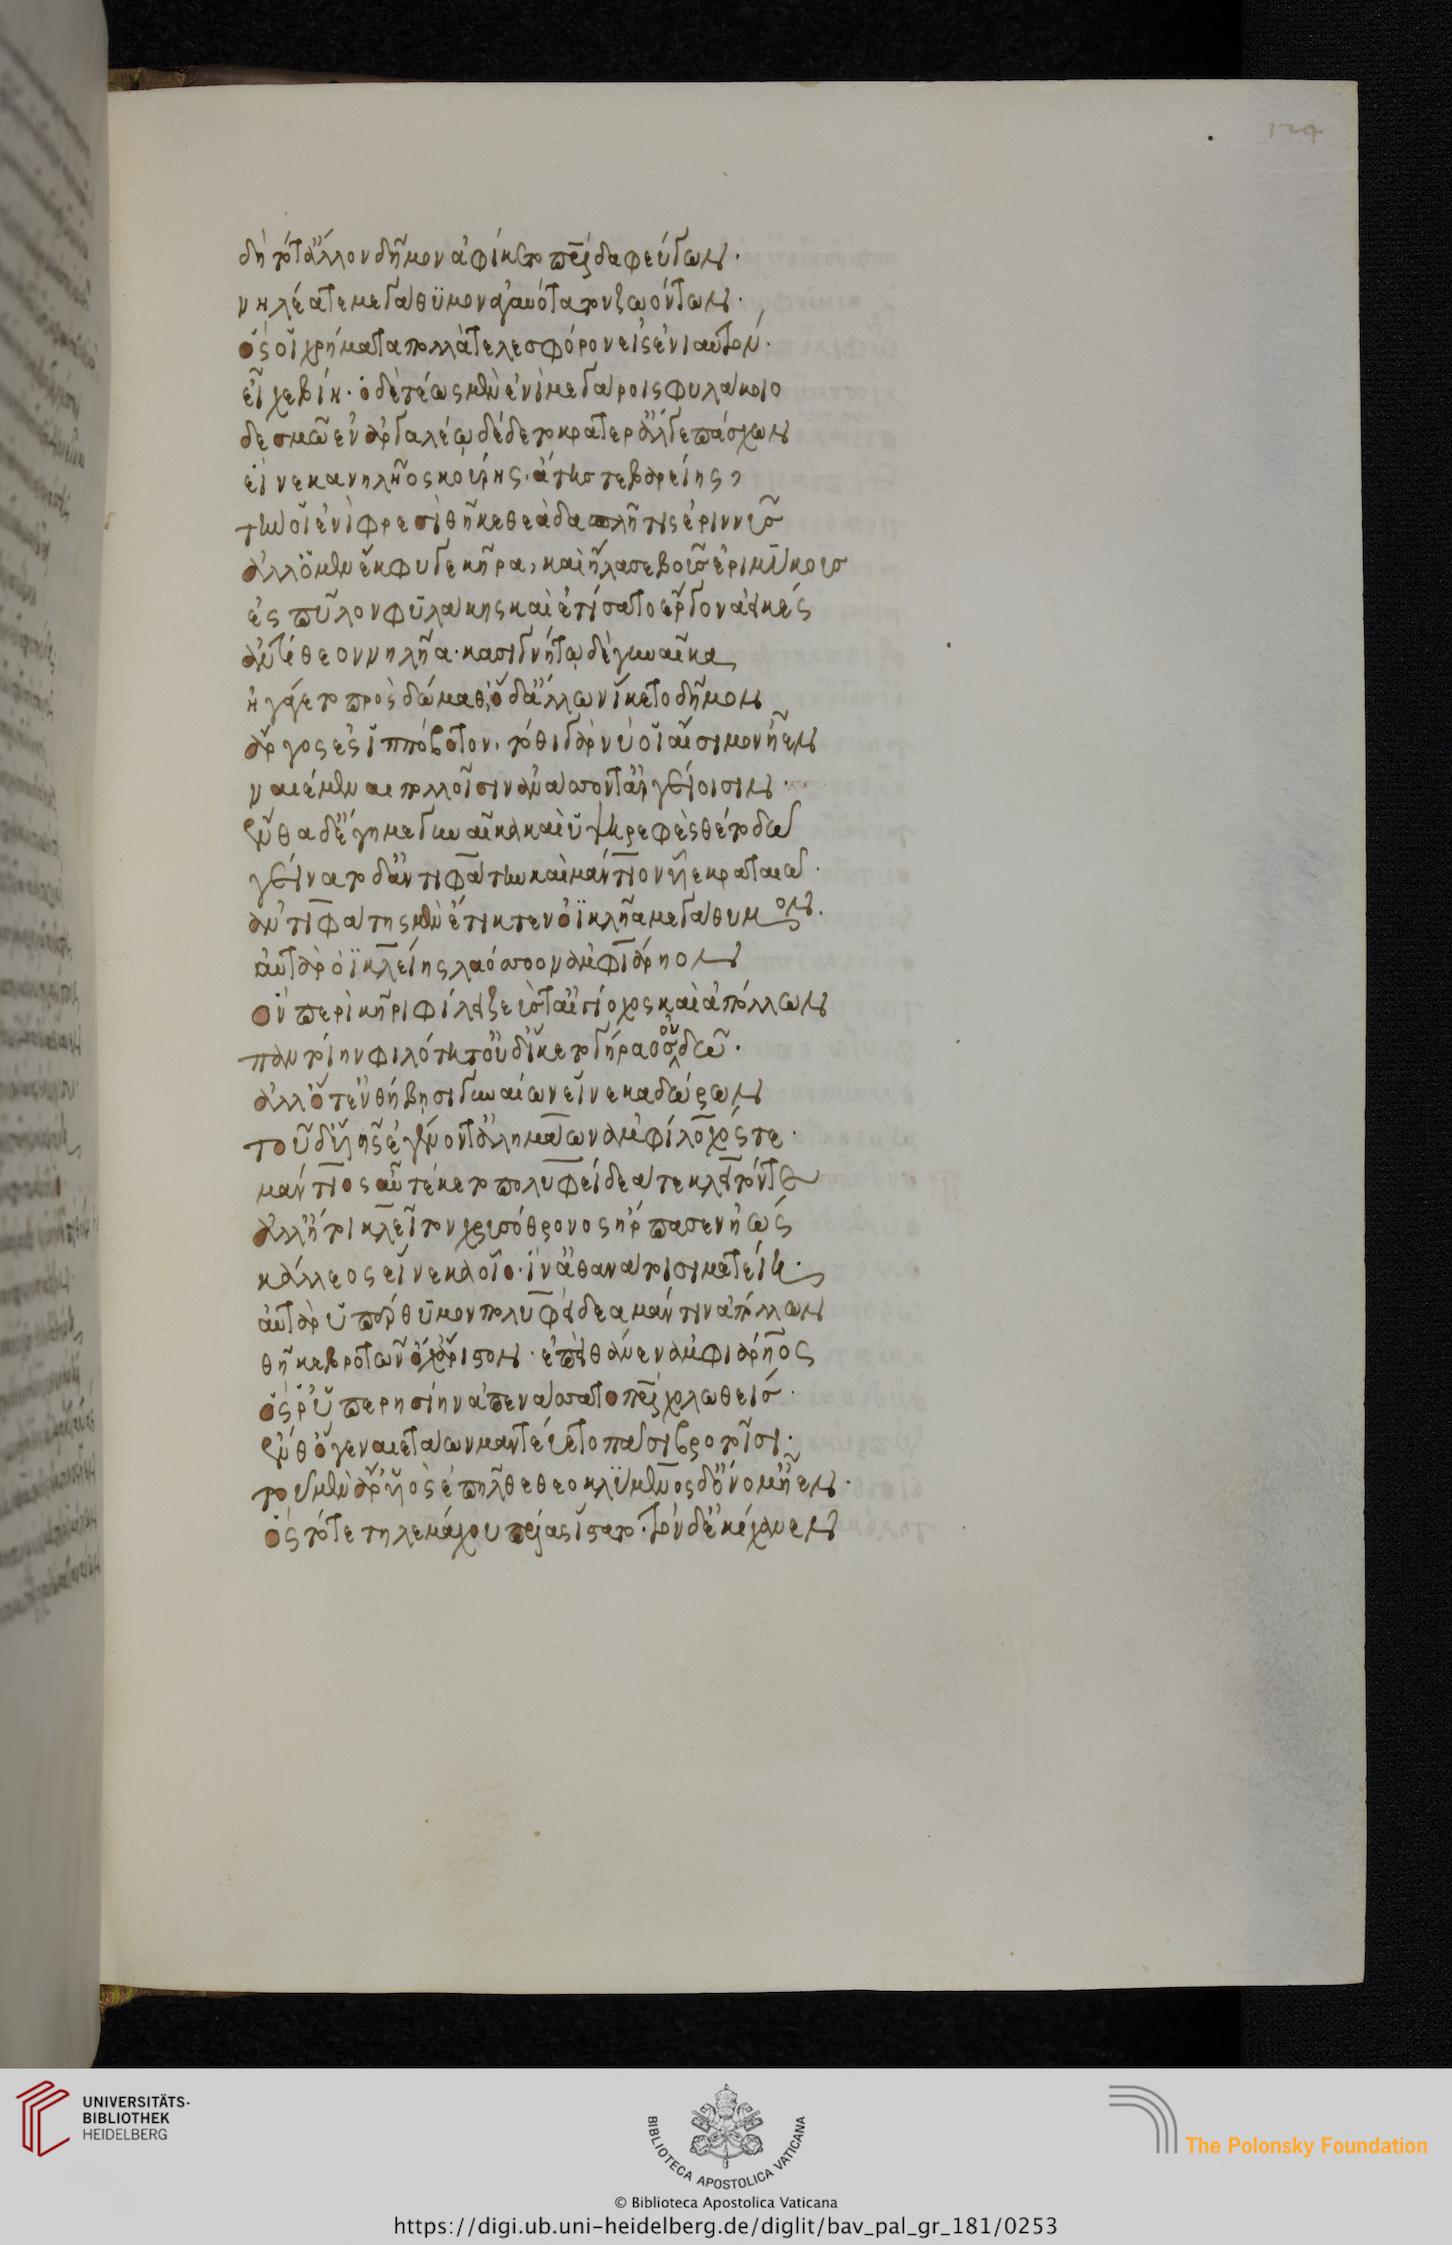 124
δὴ τότ' ἄλλον δῆμον ἀφίκετο πατρίδα φεύγων·
νηλέα τε μεγάθυμον ἀγαυότατον ζωόντων·
ὅς οἱ χρήματα πολλὰ τελεσφόρον εἰς ἐνιαυτόν·
εἶχε βίῃ· ὁ δὲ τέως μὲν ἐνὶ μεγάροις φυλάκοιο
δεσμῶ ἐν ἀργαλέῳ δέδετο κρατέρ' ἄλγεα πάσχων
εἵνεκα νηλῆος κούρης· ἄτης τε βαρείης,
τήν οἱ ἐνὶ φρεσὶ θῆκε θεὰ δασπλῆτις ἐριννύς
ἀλλ' ὃ μὲν ἔκφυγε κῆρα, καὶ ἤλασε βοῦς ἐριμύκους
ἐς πῦλον φυλάκης καὶ ἐτίσατο ἔργον ἀεικές
ἀντίθεον νηλῆα· κασιγνήτῳ δὲ γυναῖκα
ἠγάγετο πρὸς δώμαθ', ὅδ' ἄλλων ἵκετο δῆμον
ἄργος ἐς ἱππόβοτον· τόθι γάρ νύ οἱ αἴσιμον ἦεν
ναιέμεναι πολλοῖσιν ἀνάσσοντ' ἀργείοισιν·
ἔνθα δ' ἔγημε γυναῖκα καὶ ὑψηρεφὲς θέτο δῶ
γείνατο δ' ἀντιφάτην καὶ μάντιον υἷε κραταιώ·
ἀντιφάτης μὲν ἔτικτεν ὀϊκλῆα μεγάθυμον·
αὐτὰρ ὀϊκλείης λαόσσοον ἀμφιάρηον
ὃν περὶ κῆρι φίλει ζεύς τ' αἰγίοχος καὶ ἀπόλλων
παντοίην φιλότητ' οὐδ' ἵκετο γήραος οὐδῶ·
ἀλλ' ὄλετ' ἐν θήβῃσι γυναίων εἵνεκα δώρων
τοῦ δ' υἱῆς ἐγένοντ' ἀλκμαίων ἀμφίλοχός τε·
μάντιος αὖ τέκετο πολυφείδεά τε κλεῖτόν τε
ἀλλ' ἤτοι κλεῖτον χρυσόθρονος ἥρπασεν ἠώς
κάλλεος εἵνεκα οἷο· ἵν' ἀθανάτοισι μετείη·
αὐτὰρ ὑπέρθυμον πολυφείδεα μάντιν ἀπόλλων
θῆκε βροτῶν ὄχ' ἄριστον· ἐπεὶ θάνεν ἀμφιάρηος
ὅς ῥ' ὑπερησίην ἀπενάσσατο πατρὶ χολωθείς·
ἔνθ' ὅγε ναιετάων μαντεύετο πᾶσι βροτοῖσι·
τοῦ μὲν ἄρ' υἱὸς ἐπῆλθε θεοκλύμενος δ' ὄνομ' ἦεν·
ὃς τότε τηλεμάχου πέλας ἵστατο· τὸν δ' ἐκίχανεν
UNIVERSITÄTS-
BIBLIOTHEK
HEIDELBERG
BIBLIOTECA APOSTOLICA VATICANA
The Polonsky Foundation
© Biblioteca Apostolica Vaticana
https://digi.ub.uni-heidelberg.de/diglit/bav_pal_gr_181/0253